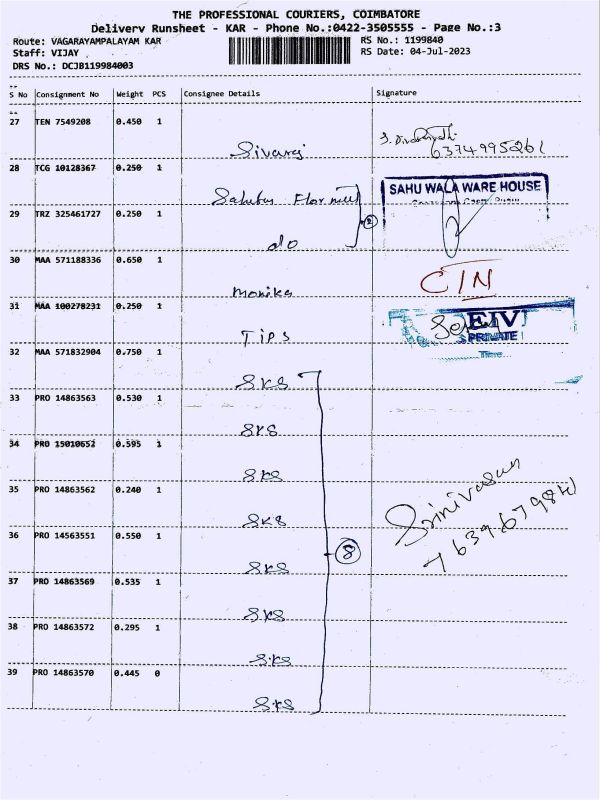 THE PROFESSIONAL COURIERS, COIMBATORE
Delivery Runsheet - KAR - Phone No.:0422-3505555 - Page No.:3
Route: VAGARAYAMPALAYAM KAR RS No.: 1199840
Staff: VIJAY RS Date: 04-Jul-2023
DRS No.: DCJB119984003
S No Consignment No Weight PCS Consignee Details Signature
27 TEN 7549208 0.450 1
Sivaraj 6374995261
28 TCG 10128367 0.250 1
SAHU WALA WARE HOUSE
29 TRZ 325461727 0.250 1 2
do
30 MAA 571188336 0.650 1
Monika C/N
31 MAA 100278231 0.250 1
TIPS EIV
PRIVATE
32 MAA 571832904 0.750 1 Time
SKS
33 PRO 14863563 0.530 1
SKS
34 PRO 15010652 0.595 1
SKS
35 PRO 14863562 0.240 1
SKS Srinivasan
36 PRO 14563551 0.550 1
SKS 8
37 PRO 14863569 0.535 1
SKS
38 PRO 14863572 0.295 1
SKS
39 PRO 14863570 0.445 0
SKS